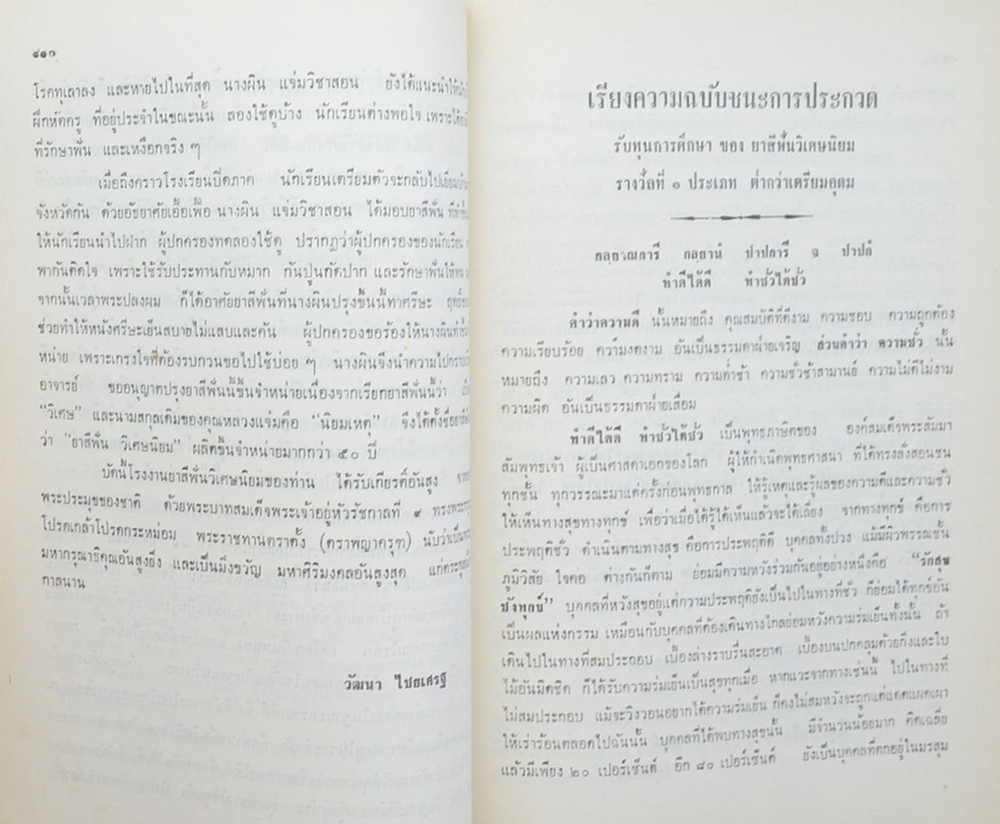 ๔๑๐
โรคทุเลาลง และหายไปในที่สุด นางผิน แจ่มวิชาสอน ยังได้แนะนำให้นัก
ฝึกหัดครู ที่อยู่ประจำในขณะนั้น ลองใช้ดูบ้าง นักเรียนต่างพอใจ เพราะได้
ที่รักษาฟัน และเหงือกจริง ๆ
เมื่อถึงคราวโรงเรียนปิดภาค นักเรียนเตรียมตัวจะกลับไปเยี่ยม
จังหวัดกัน ด้วยอัธยาศัยเอื้อเฟื้อ นางผิน แจ่มวิชาสอน ได้มอบยาสีฟัน
ให้นักเรียนนำไปฝาก ผู้ปกครองทดลองใช้ดู ปรากฏว่าผู้ปกครองของนักเรียน
พากันติดใจ เพราะใช้รับประทานกับหมาก กันปูนกัดปาก และรักษาฟันให้
จากนั้นเวลาพระปลงผม ก็ได้อาศัยยาสีฟันที่นางผินปรุงขึ้นนี้ทาศรีษะ
ช่วยทำให้หนังศรีษะเย็นสบายไม่แสบและคัน ผู้ปกครองขอร้องให้นางผินทำ
หน่าย เพราะเกรงใจที่ต้องรบกวนขอไปใช้บ่อย ๆ นางผินจึงนำความไป
อาจารย์ ขออนุญาตปรุงยาสีฟันนี้ขึ้นจำหน่ายเนื่องจากเรียกยาสีฟันนี้ว่า
“วิเศษ” และนามสกุลเดิมของคุณหลวงแจ่มคือ “นิยมเหตุ” จึงได้ตั้งชื่อ
ว่า “ยาสีฟัน วิเศษนิยม” ผลิตขึ้นจำหน่ายมากกว่า ๕๐ ปี
บัดนี้โรงงานยาสีฟันวิเศษนิยมของท่าน ได้รับเกียรติ์อันสูง
พระประมุขของชาติ ด้วยพระบาทสมเด็จพระเจ้าอยู่หัวรัชกาลที่ ๙ ทรงพระ
โปรดเกล้าโปรดกระหม่อม พระราชทานตราตั้ง (ตราพญาครุฑ) นับว่าเป็น
มหากรุณาธิคุณอันสูงยิ่ง และเป็นมิ่งขวัญ มหาศิริมงคลอันสูงสุด แก่ตระกูล
กาลนาน
วัฒนา ไชยเศรฐ์
เรียงความฉบับชนะการประกวด
รับทุนการศึกษา ของ ยาสีฟันวิเศษนิยม
รางวัลที่ ๑ ประเภท ต่ำกว่าเตรียมอุดม
กลฺยาณการี กลฺยานํ ปาปการี จ ปาปกํ
ทำดีได้ดี ทำชั่วได้ชั่ว
คำว่าความดี นั้นหมายถึง คุณสมบัติที่ดีงาม ความชอบ ความถูกต้อง
ความเรียบร้อย ความงดงาม อันเป็นธรรมดาฝ่ายเจริญ ส่วนคำว่า ความชั่ว นั้น
หมายถึง ความเลว ความทราม ความต่ำช้า ความชั่วช้าสามานย์ ความไม่ดีไม่งาม
ความผิด อันเป็นธรรมดาฝ่ายเสื่อม
ทำดีได้ดี ทำชั่วได้ชั่ว เป็นพุทธภาษิตของ องค์สมเด็จพระสัมมา
สัมพุทธเจ้า ผู้เป็นศาสดาเอกของโลก ผู้ให้กำเนิดพุทธศาสนา ที่ได้ทรงสั่งสอนชน
ทุกชั้น ทุกวรรณะมาแต่ครั้งก่อนพุทธกาล ให้รู้เหตุและรู้ผลของความดีและความชั่ว
ให้เห็นทางสุขทางทุกข์ เพื่อว่าเมื่อได้รู้ได้เห็นแล้วจะได้เลี่ยง จากทางทุกข์ คือการ
ประพฤติชั่ว ดำเนินตามทางสุข คือการประพฤติดี บุคคลทั้งปวง แม้มีผิวพรรณชั้น
ภูมิวิสัย ใจคอ ต่างกันก็ตาม ย่อมมีความหวังร่วมกันอยู่อย่างหนึ่งคือ “รักสุข
ชังทุกข์” บุคคลที่หวังสุขอยู่แต่ความประพฤติยังเป็นไปในทางที่ชั่ว ก็ย่อมได้ทุกข์อัน
เป็นผลแห่งกรรม เหมือนกับบุคคลที่ต้องเดินทางไกลย่อมหวังความร่มเย็นทั้งนั้น ถ้า
เดินไปในทางที่สมประกอบ เบื้องล่างราบรื่นสะอาด เบื้องบนปกคลุมด้วยกิ่งและใบ
ไม้อันมิดชิด ก็ได้รับความร่มเย็นเป็นสุขทุกเมื่อ หากแวะจากทางเช่นนี้ ไปในทางที่
ไม่สมประกอบ แม้จะวิงวอนอยากได้ความร่มเย็น ก็คงไม่สมหวังจะถูกแต่แดดแผดเผา
ให้เร่าร้อนตลอดไปฉันนั้น บุคคลที่ได้พบทางสุขนั้น มีจำนวนน้อยมาก คิดเฉลี่ย
แล้วมีเพียง ๒๐ เปอร์เซ็นต์ อีก ๘๐ เปอร์เซ็นต์ ยังเป็นบุคคลที่ตกอยู่ในมรสุม